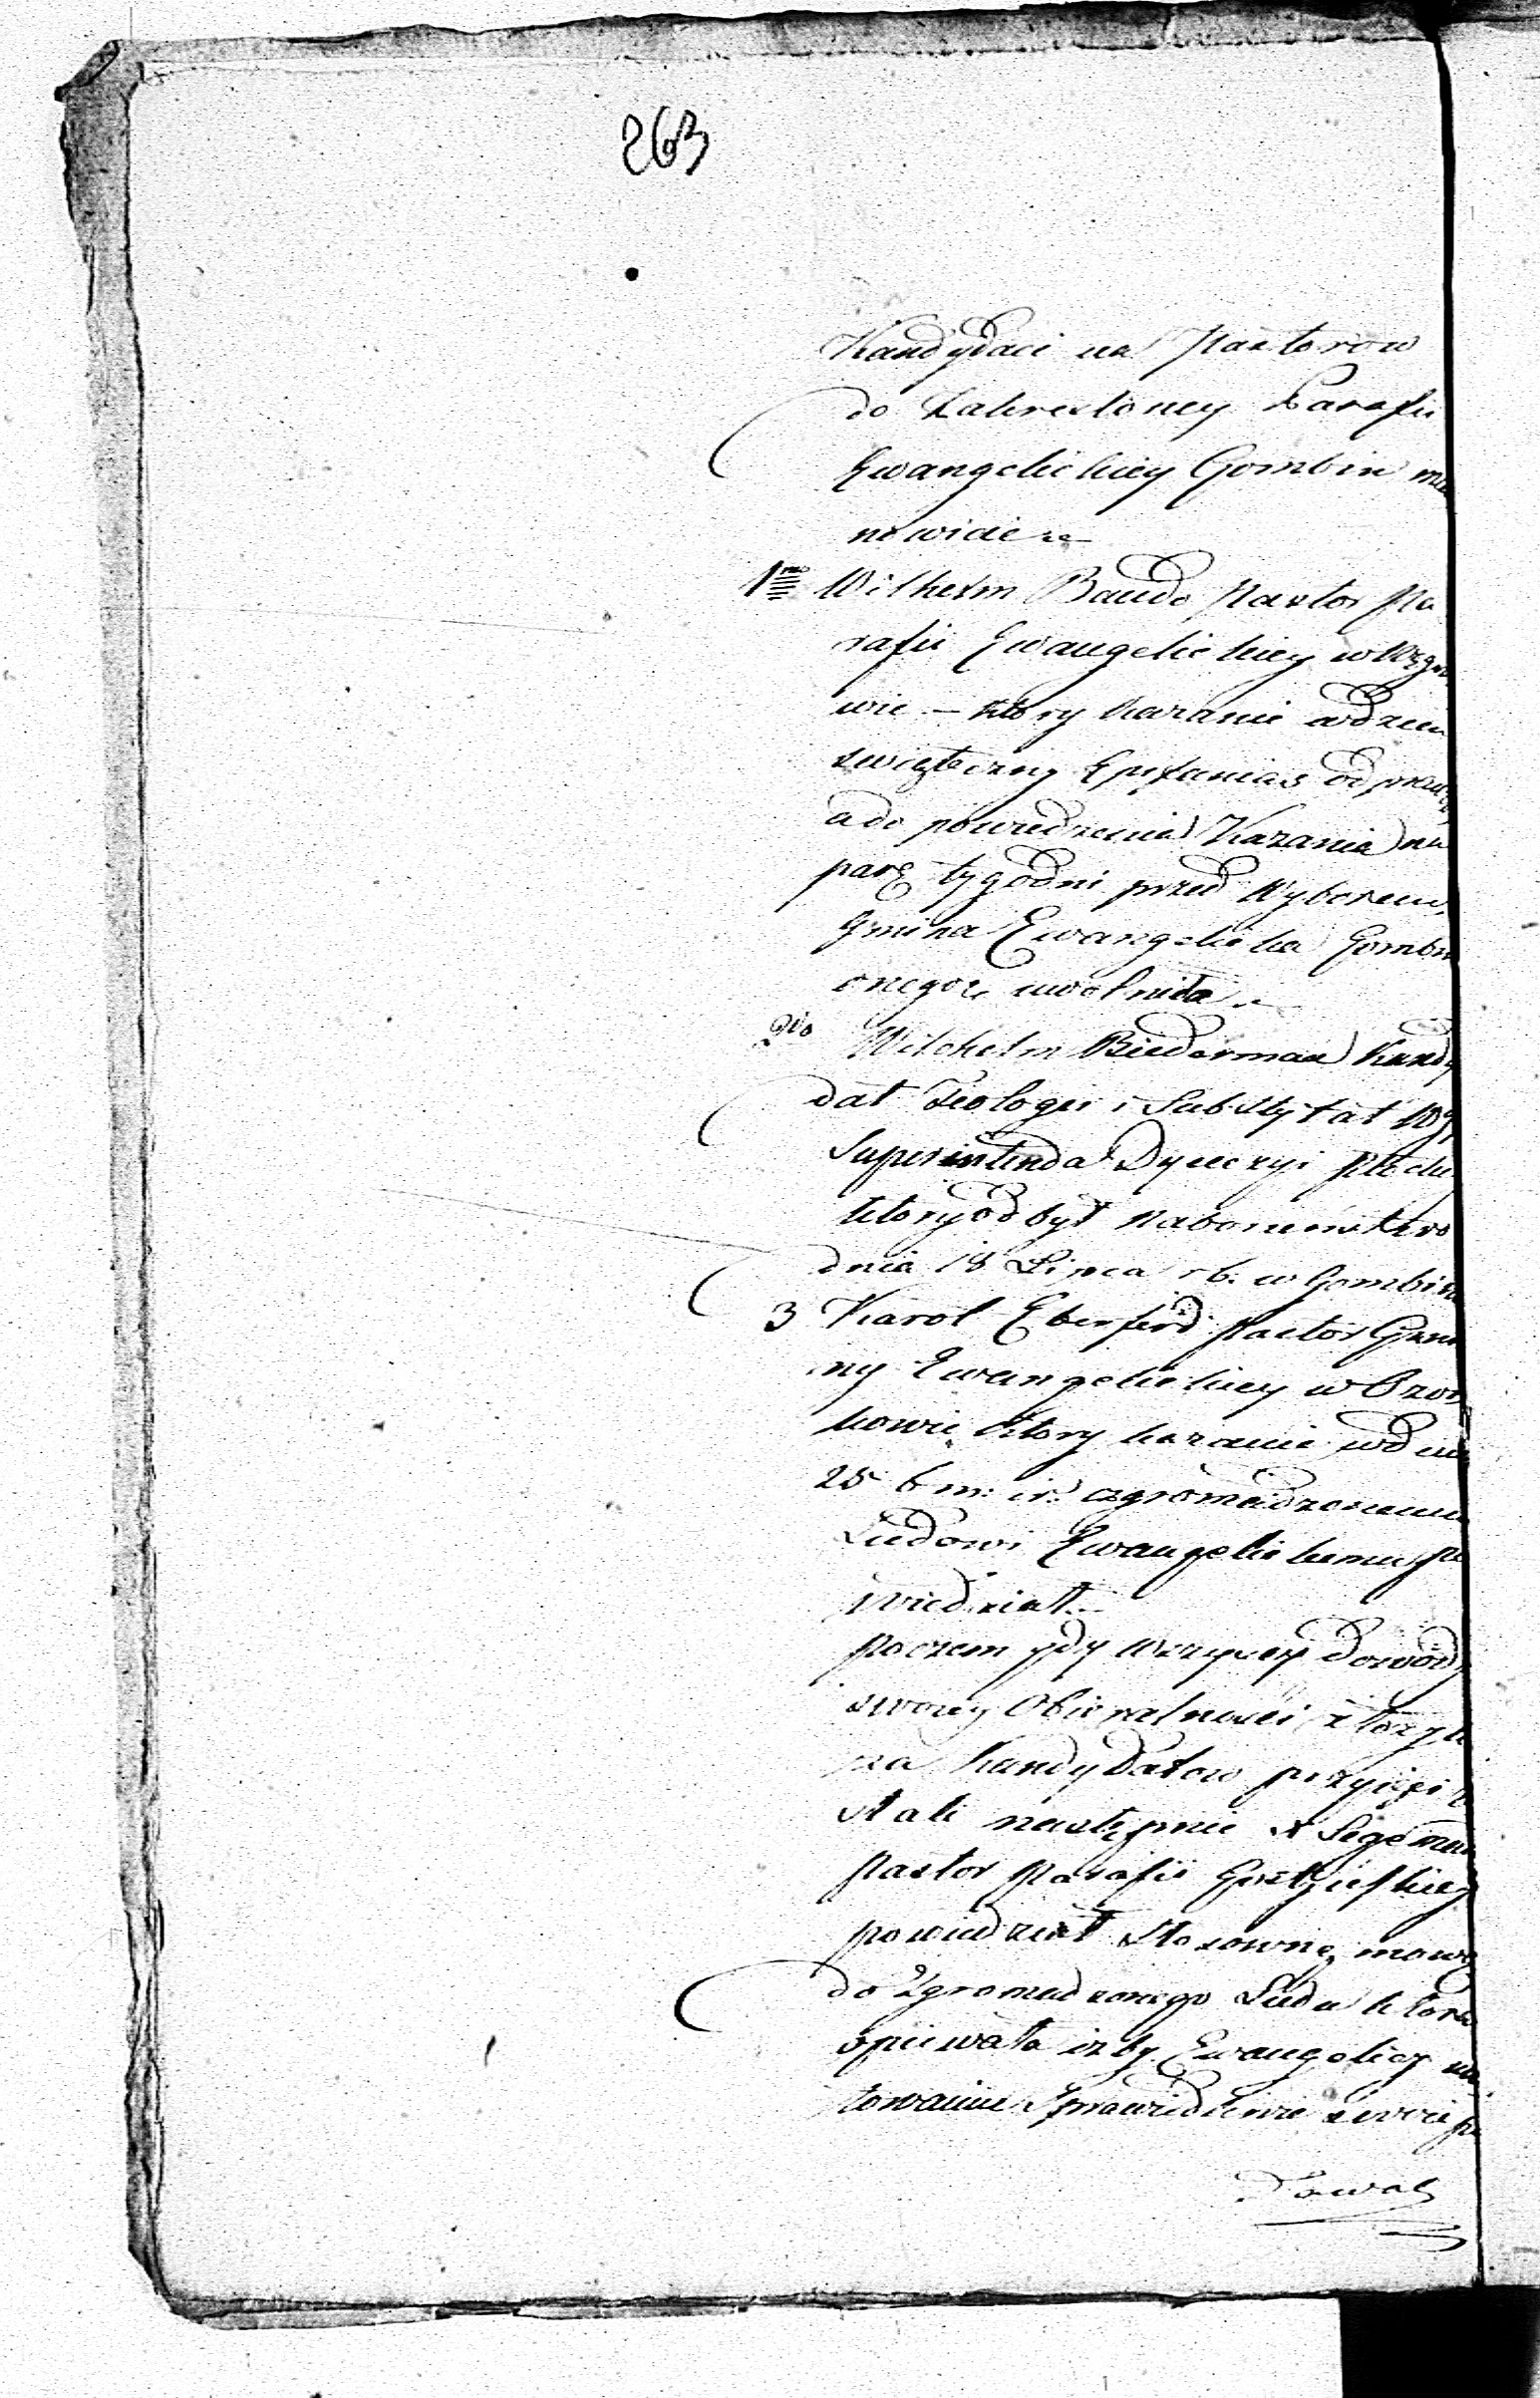 263
Kandydaci na Pastorow
do Zakreśloney Parafii
Ewangelickiey Gombin mia
nowicie
1mo Wilhelm Baudo Pastor Pa
rafii Ewangelickiey w
wie – ktory kazanie w dzien
swięteczny Epifanias
a do powiedzenia Kazania na
parę tygodni przed Wyborem
Gmina Ewangelicka Gombin
onegoż uwolniła
2do Wilchelm Biederman Kandy
dat Teologii i Substytut
Superintenda Dyecezyi
ktory odbył nabozenstwo
dnia 18 Lipca rb: w Gombin
3 Karol Eberferd Pastor Gmi
ny Ewangelickiey w Ozor
kowie ktory kazanie w dniu
25 bm: ir: zgromadzonemu
Ludowi Ewangelickemu po
wiedział
Poczem gdy wszyscy dowody
swoiey Obieralności złozyli
za Kandydatow przyięci zo
stali następnie X
Pastor Parafii
powiedział stosowną mowę
do Zgromadzonego Ludu ktora
opiewała izby Ewangelicy
towaniu Sprawiedliwie